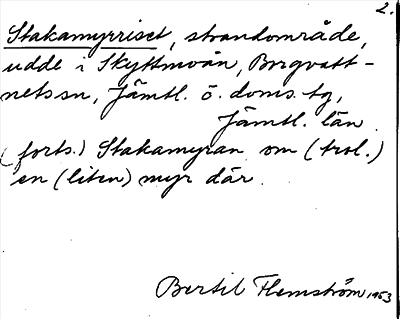 2.
Stakamyrriset, strandområde,
udde i Skyttmoån, Borgvatt-
nets sn, Jämtl. ö. doms. tg,
Jämtl. län
(forts.) Stakamyran om (trol.)
en (liten) myr där.
Bertil Flemström 1953